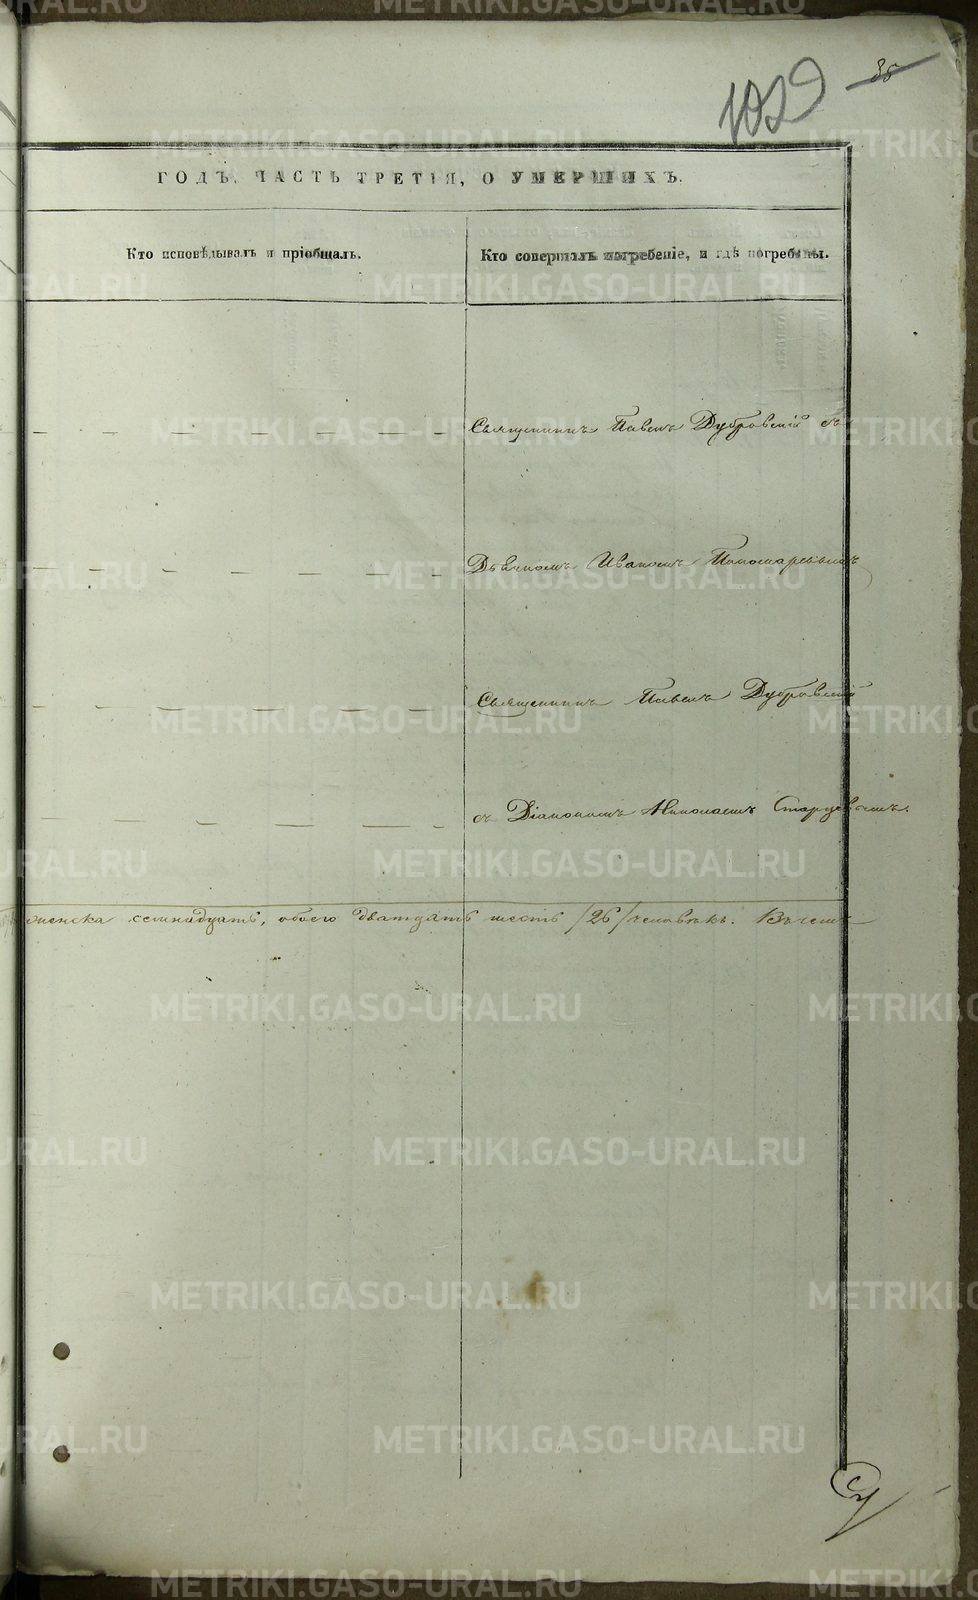 35
1029
ГОДЪ, ЧАСТЬ ТРЕТІЯ, О УМЕРШИХЪ.
Кто исповѣдывалъ и пріобщалъ.
Кто совершалъ погребеніе, и гдѣ погребены.
Священникъ Павелъ Дубровскій съ
Дьячкомъ Иваномъ Пономаревымъ
Священникъ Павелъ Дубровскій
съ Діакономъ Николаемъ Старцевымъ.
женска семнадцать, обоего двадцать шесть /26/ человѣкъ. Въ чемъ
METRIKI.GASO-URAL.RU